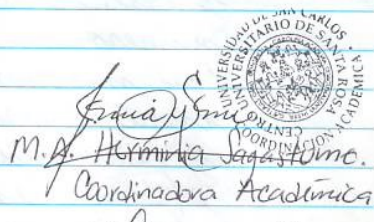 UNIVERSIDAD DE SAN CARLOS
CENTRO UNIVERSITARIO DE SANTA ROSA
COORDINACIÓN ACADÉMICA
M.A. Herminia Sagastume.
Coordinadora Académica